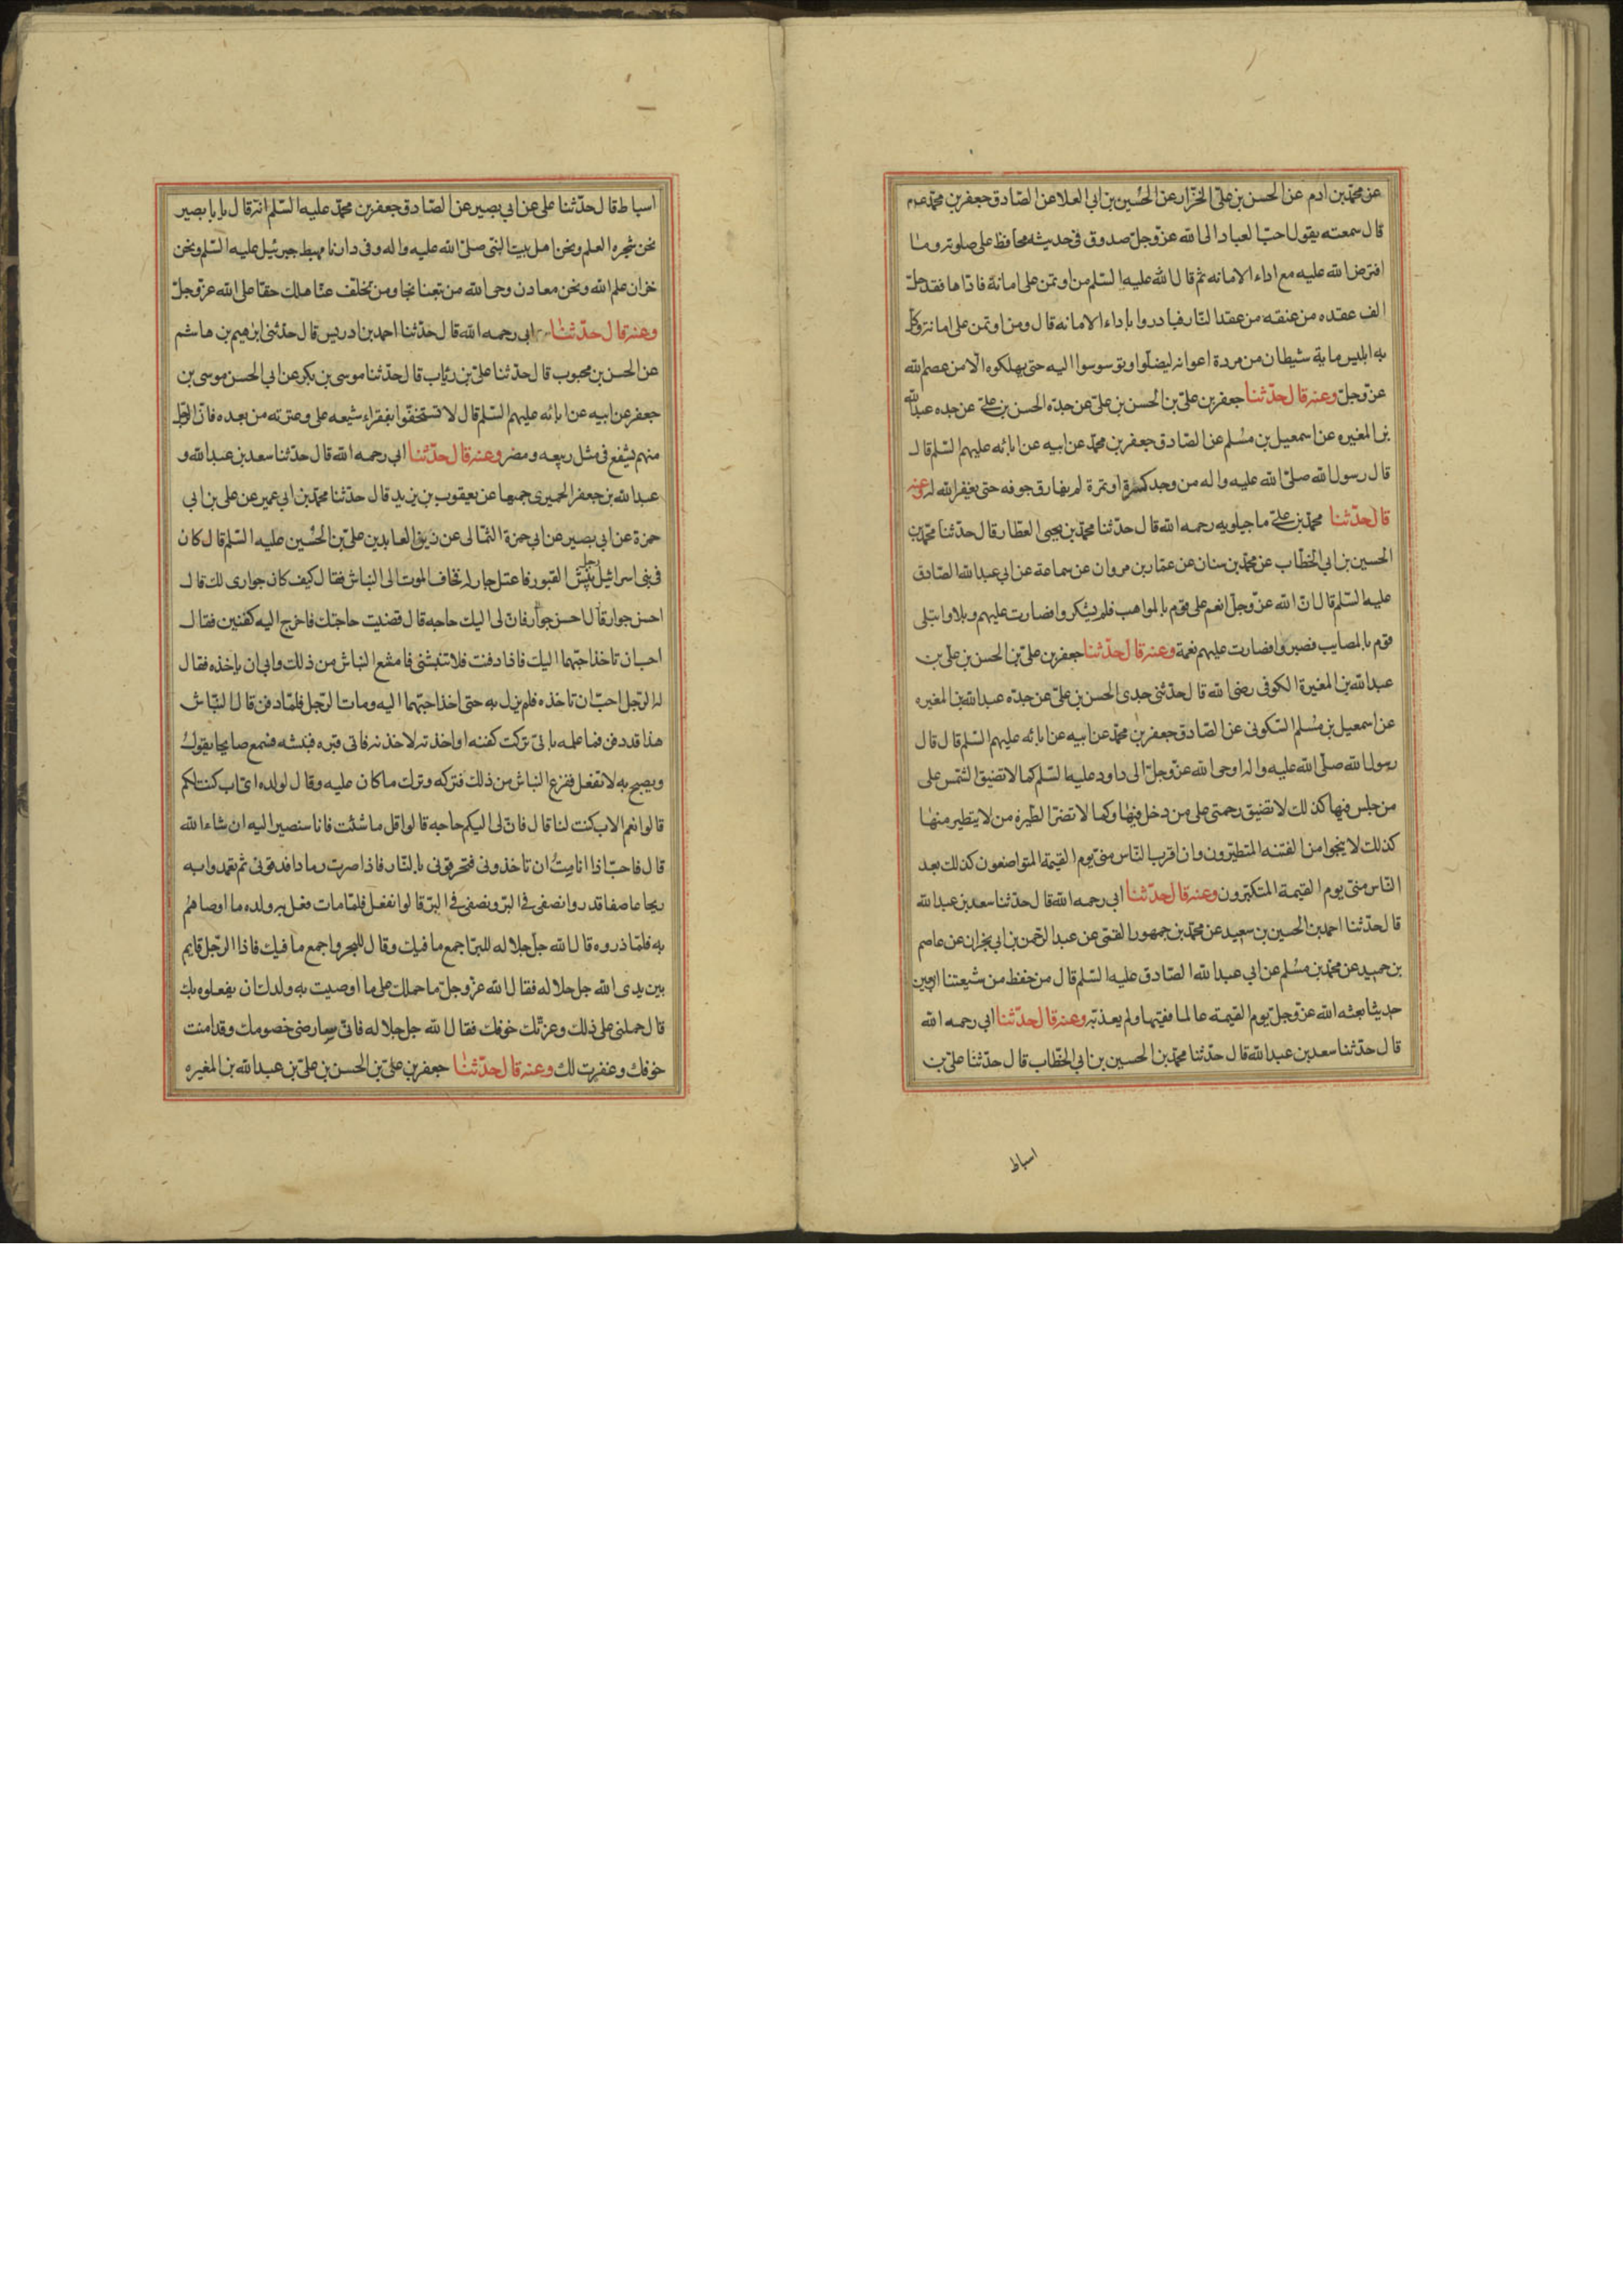 عن محمد بن ادم عن الحسن بن علي الخزار عن الحسين بن ابي العلا عن الصادق جعفر بن محمد عم
قال سمعته يقول احب العباد الى الله عز وجل صدوق في حديثه محافظ على صلوته وما
افترض الله عليه مع اداء الامانه ثم قال الله عليه السلم من اوتمن على امانة فاداها فقد حل
الف عقده من عنقه من عقد النار فبادروا باداء الامانه قال ومن اوتمن على امانته وكل
به ابليس ماية شيطان من مردة اعوانه ليضلوا ويوسوسوا اليه حتى يهلكوه الا من عصم الله
عز وجل وعنه قال حدثنا جعفر بن علي بن الحسن بن علي عن جده الحسن بن علي عن جده عبد الله
بن المغيره عن اسمعيل بن مسلم عن الصادق جعفر بن محمد عن ابيه عن ابائه عليهم السلم قال
قال رسول الله صلى الله عليه واله من وجد كسرة او تمرة لم يفارق جوفه حتى يغفر الله له وعنه
قال حدثنا محمد بن علي ماجيلويه رحمه الله قال حدثنا محمد بن يحيى العطار قال حدثنا محمد بن
الحسين بن ابي الخطاب عن محمد بن سنان عن عمار بن مروان عن سماعة عن ابي عبد الله الصادق
عليه السلم قال ان الله عز وجل انعم على قوم بالمواهب فلم يشكروا فصارت عليهم وبالا وابتلى
قوم بالمصايب فصبروا فصارت عليهم نعمة وعنه قال حدثنا جعفر بن علي بن الحسن بن علي بن
عبد الله بن المغيرة الكوفي رضى الله قال حدثنى جدى الحسن بن علي عن جده عبد الله بن المغيره
عن اسمعيل بن مسلم السكوني عن الصادق جعفر بن محمد عن ابيه عن ابائه عليهم السلم قال قال
رسول الله صلى الله عليه واله اوحى الله عز وجل الى داود عليه السلم كما لا تضيق الشمس على
من جلس فيها كذلك لا تضيق رحمتى على من دخل فيها وكما لا تضر الطيرة من لا يتطير منها
كذلك لا ينجوا من الفتنه المتطيرون وان اقرب الناس منى يوم القيمة المتواضعون كذلك بعد
الناس منى يوم القيمة المتكبرون وعنه قال حدثنا ابي رحمه الله قال حدثنا سعد بن عبد الله
قال حدثنا احمد بن الحسين بن سعيد عن محمد بن جمهور القمى عن عبد الرحمن بن ابي نجران عن عاصم
بن حميد عن محمد بن مسلم عن ابي عبد الله الصادق عليه السلم قال من حفظ من شيعتنا اربعين
حديثا بعثه الله عز وجل يوم القيمة عالما فقيها ولم يعذبه وعنه قال حدثنا ابي رحمه الله
قال حدثنا سعد بن عبد الله قال حدثنا محمد بن الحسين بن ابي الخطاب قال حدثنا علي بن
اسباط
اسباط قال حدثنا على عن ابي بصير عن الصادق جعفر بن محمد عليه السلم انه قال يا با بصير
نحن شجره العلم ونحن اهل بيت النبي صلى الله عليه واله وفى دارنا مهبط جبرئيل عليه السلم ونحن
خزان علم الله ونحن معادن وحى الله من تبعنا نجا ومن تخلف عنا هلك حقا على الله عز وجل
وعنه قال حدثنا ابي رحمه الله قال حدثنا احمد بن ادريس قال حدثنى ابرهيم بن هاشم
عن الحسن بن محبوب قال حدثنا علي بن رئاب قال حدثنا موسى بن بكر عن ابي الحسن موسى بن
جعفر عن ابيه عن ابائه عليهم السلم قال لا تستخفوا بفقراء شيعه على وعترته من بعده فان الرجل
منهم يشفع فى مثل ربيعه ومضر وعنه قال حدثنا ابي رحمه الله قال حدثنا سعد بن عبد الله و
عبد الله بن جعفر الحميرى جميعا عن يعقوب بن يزيد قال حدثنا محمد بن ابي عمير عن على بن ابي
حمزة عن ابي بصير عن ابي حمزة الثمالى عن زين العابدين علي بن الحسين عليه السلم قال كان
فى بنى اسرائيل رجل ينبش القبور فاعتل جار له فخاف الموت الى النباش فقال كيف كان جوارى لك قال
احسن جوار قال احسن جوار فان لى اليك حاجه قال قضيت حاجتك فاخرج اليه كفنين فقال
احب ان تاخذ احبهما اليك فاذا دفنت فلا تنبشنى فامتنع النباش من ذلك وابي ان ياخذه فقال
له الرجل احب ان تاخذه فلم يزل به حتى اخذ احبهما اليه ومات الرجل فلما دفن قال النباش
هذا قد دفن فما علمه باني تركت كفنه او اخذته لاخذنه فاتى قبره فنبشه فسمع صايحا يقول
ويصيح به لا تفعل ففزع النباش من ذلك فتركه وترك ما كان عليه وقال لولده اى اب كنت لكم
قالوا نعم الاب كنت لنا قال فان لى اليكم حاجه قالوا قل ما شئت فانا سنصير اليه ان شاء الله
قال فاحب اذا انا مت ان تاخذونى فتحرقونى بالنار فاذا صرت رمادا فدقونى ثم تعمدوا به
ريحا عاصفا فذروا نصفى فى البر ونصفى فى البر قالوا نفعل فلما مات فعل به ولده ما اوصاهم
به فلما ذروه قال الله جل جلاله للبر اجمع ما فيك وقال للبحر واجمع ما فيك فاذا الرجل قايم
بين يدى الله جل جلاله فقال الله عز وجل ما حملك على ما اوصيت به ولدك ان يفعلوه بك
قال حملنى على ذلك وعزتك خوفك فقال الله جل جلاله فانى سارضى خصومك وقد امنت
خوفك وغفرت لك وعنه قال حدثنا جعفر بن علي بن الحسن بن علي بن عبد الله بن المغيره